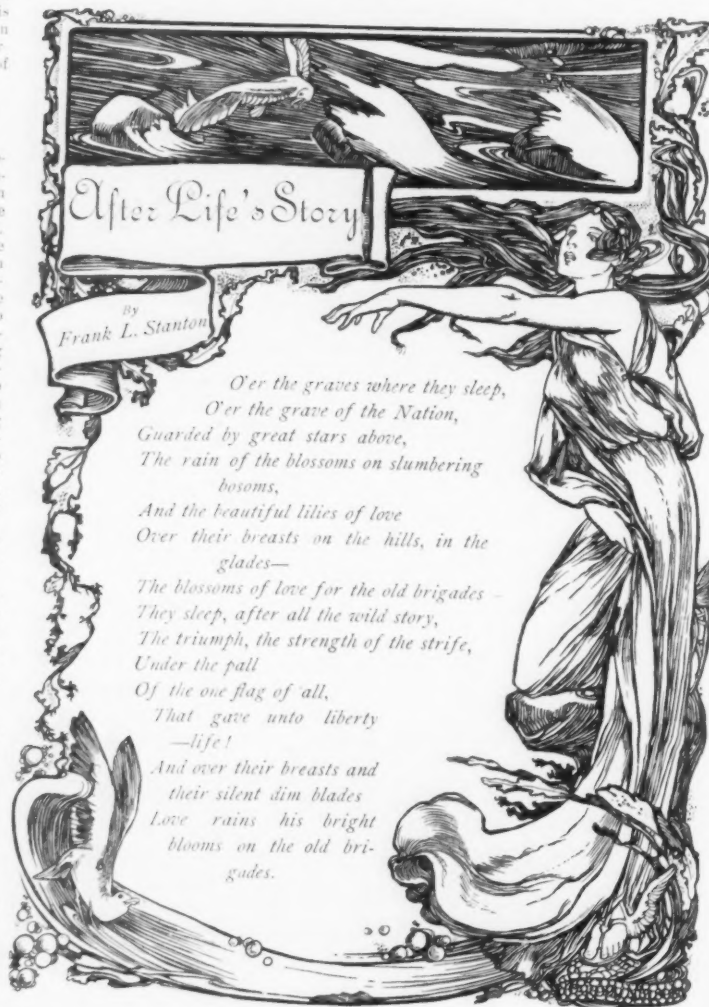 After Life's Story
By
Frank L. Stanton
O'er the graves where they sleep,
O'er the grave of the Nation,
Guarded by great stars above,
The rain of the blossoms on slumbering
bosoms,
And the beautiful lilies of love
Over their breasts on the hills, in the
glades—
The blossoms of love for the old brigades—
They sleep, after all the wild story,
The triumph, the strength of the strife,
Under the pall
Of the one flag of all,
That gave unto liberty
—life!
And over their breasts and
their silent dim blades
Love rains his bright
blooms on the old bri-
gades.